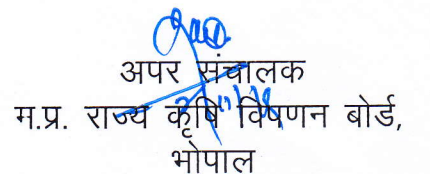 अपर संचालक
म.प्र. राज्य कृषि विपणन बोर्ड,
भोपाल